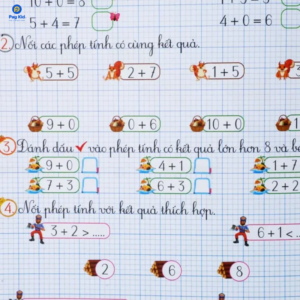 Pop Kid
10 + 0 = 8
5 + 4 = 7
4 + 0 = 6
2 Nối các phép tính có cùng kết quả.
5 + 5
2 + 7
1 + 5
3
9 + 0
0 + 6
10 + 0
1
3 Đánh dấu ✓ vào phép tính có kết quả lớn hơn 8 và b
9 + 0
4 + 1
1 + 7
7 + 3
6 + 3
2 + 2
4 Nối phép tính với kết quả thích hợp.
3 + 2 > .....
6 + 1 < ...
2
6
8